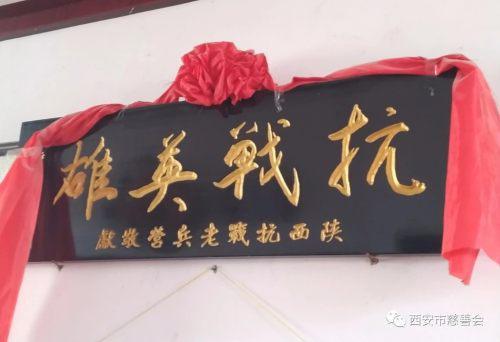 抗戰英雄
陕西抗戰老兵营敬獻
西安市慈善会